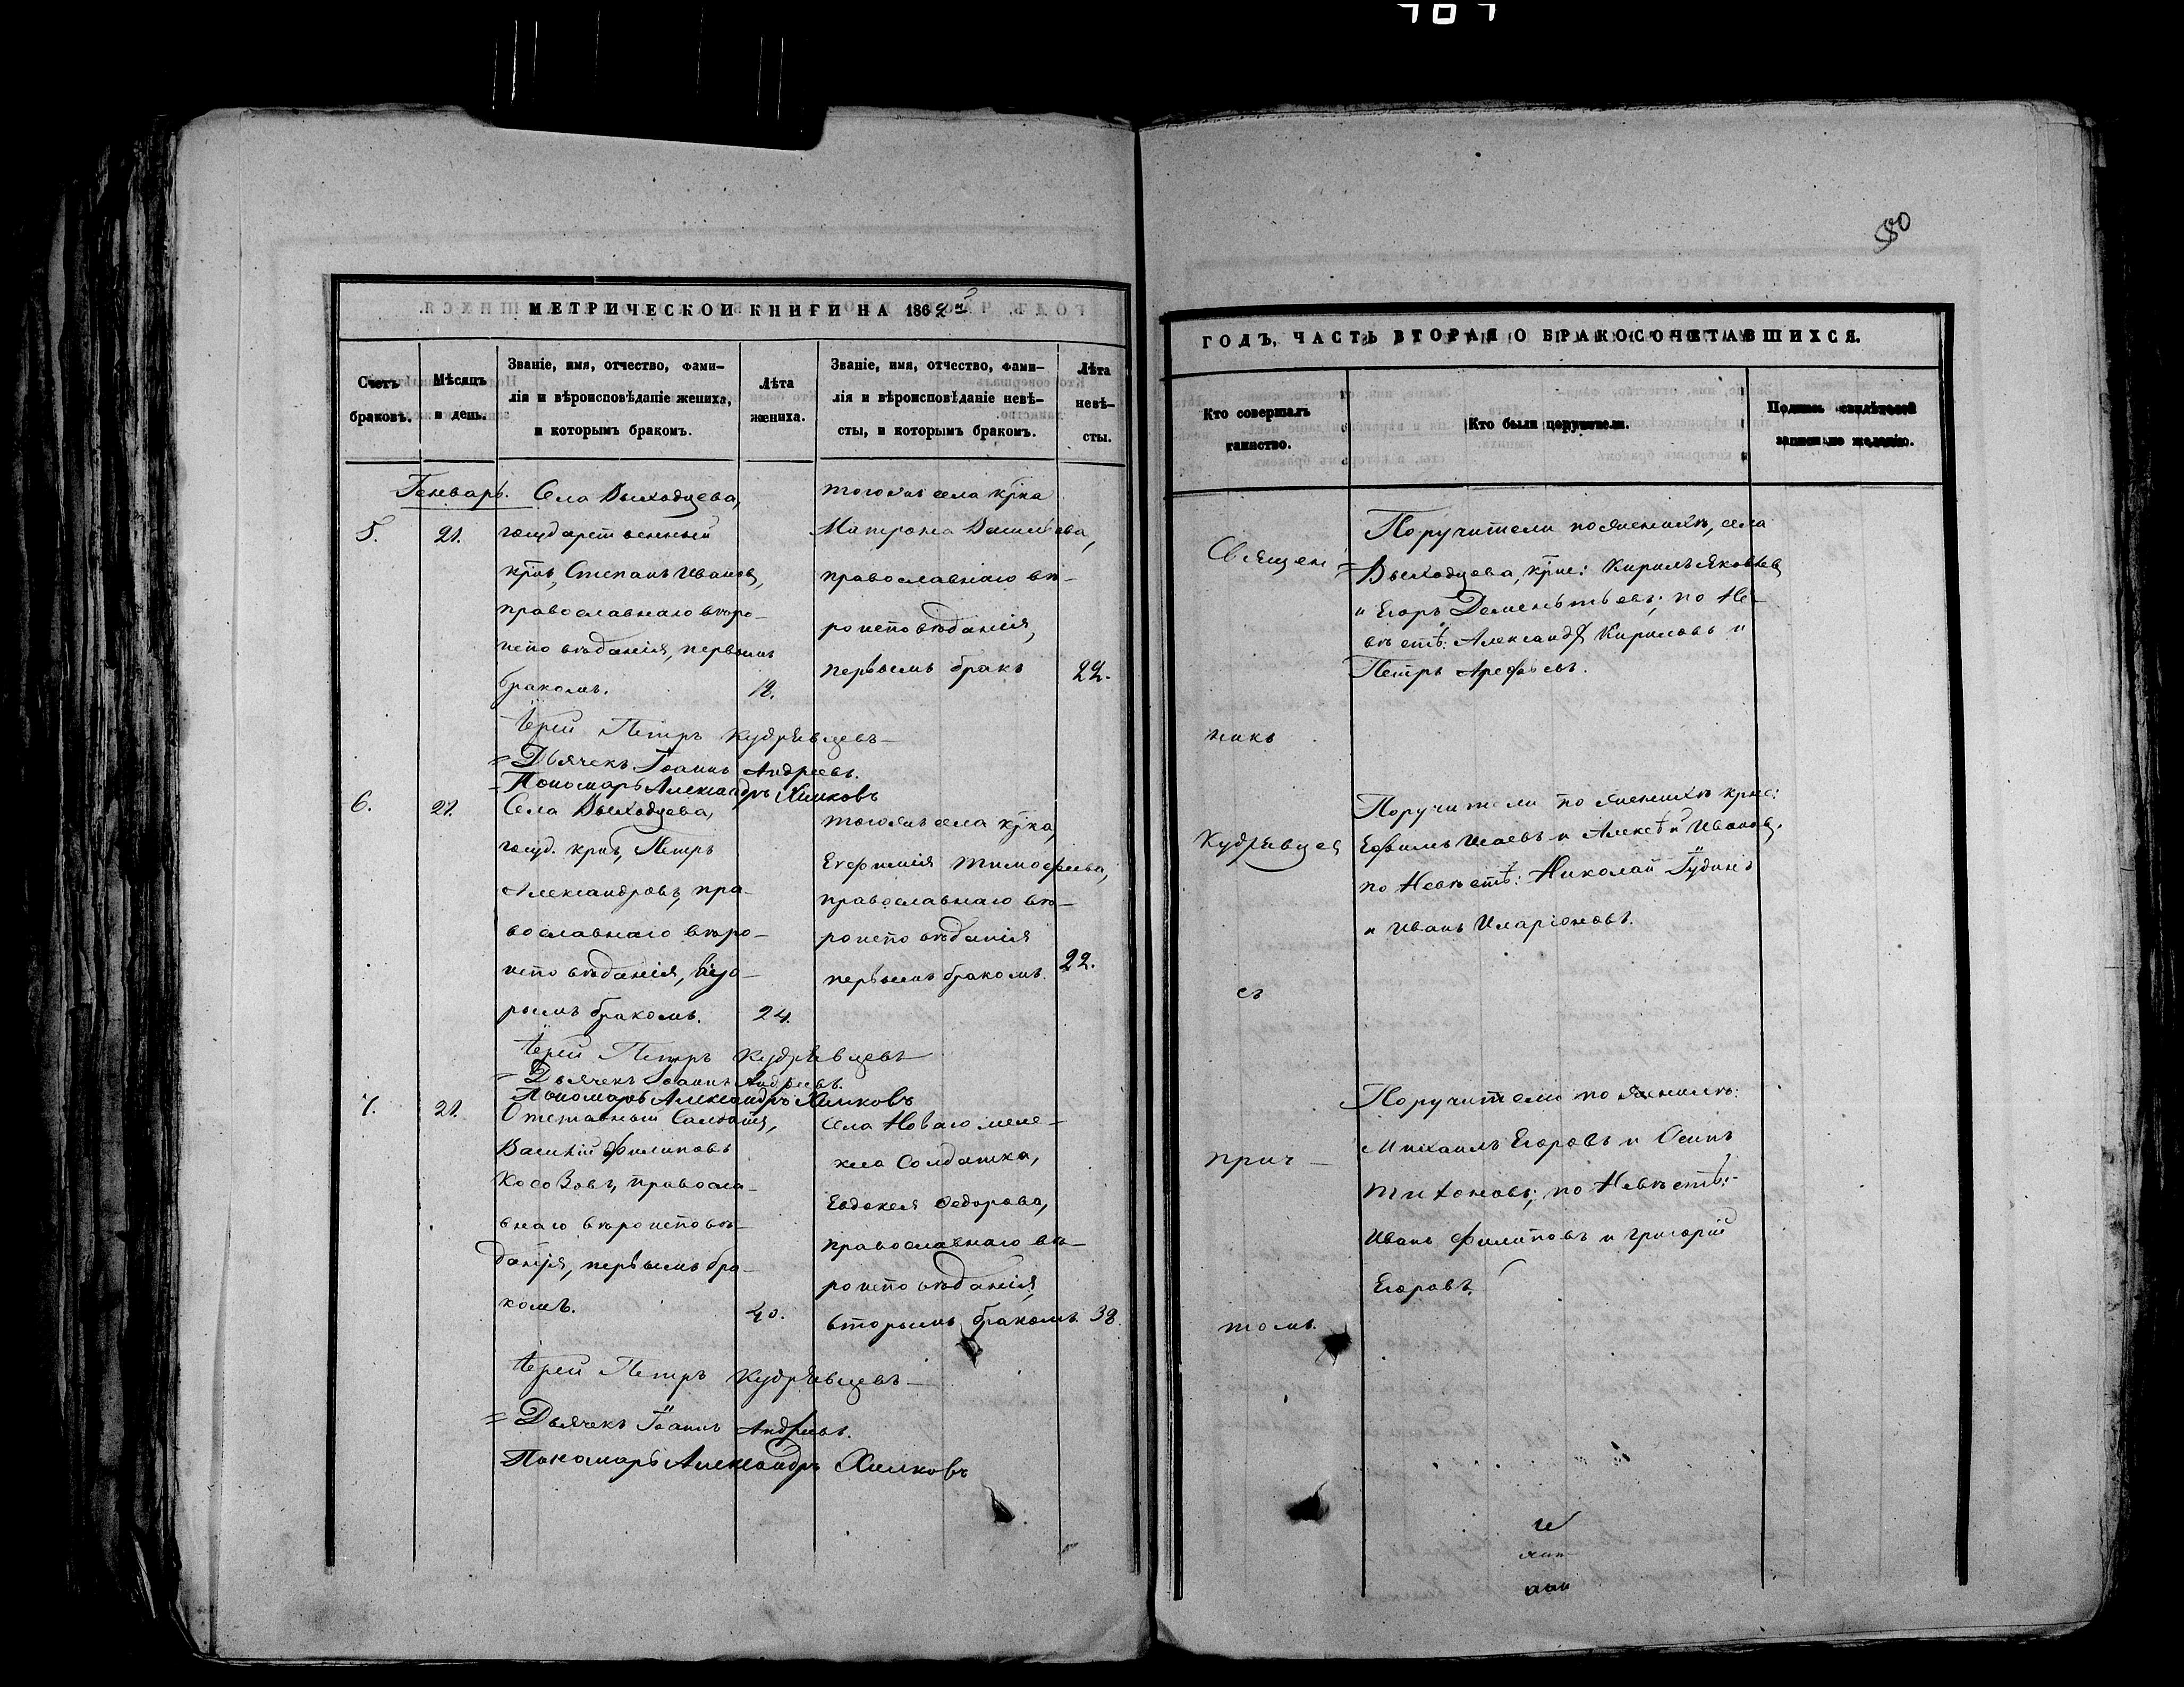 580
МЕТРИЧЕСКОЙ КНИГИ НА 1862й
Счетъ браковъ.
Мѣсяцъ и день.
Званіе, имя, отчество, фами-
лія и вѣроисповѣданіе жениха,
и которымъ бракомъ.
Лѣта
жениха.
Званіе, имя, отчество, фами-
лія и вѣроисповѣданіе невѣ-
сты, и которымъ бракомъ.
Лѣта
невѣ-
сты.
Генварь.
5.
21.
Села Выходцева,
государственный
крнъ, Степанъ Ивановъ,
православнаго вѣро-
исповѣданія, первымъ
бракомъ.
18.
тогожъ села крка
Матрона Васильева,
православнаго вѣ-
роисповѣданія,
первымъ брак
22.
Іерей Петръ Кудрявцевъ
Дьячекъ Іоаннъ Андреевъ.
Пономарь Александръ Климковъ
6.
21.
Села Выходцева,
госуд. крнъ, Петръ
Александровъ, пра-
вославнаго вѣро-
исповѣданія, вто-
рымъ бракомъ.
24.
тогожъ села крка,
Евфимія Тимофѣева,
православнаго вѣ-
роисповѣданія
первымъ бракомъ.
22.
Іерей Петръ Кудрявцевъ
Дьячекъ Іоаннъ Андреевъ.
Пономарь Александръ Климковъ
7.
21.
Отставный Салдатъ,
Василій Филиповъ
православ-
наго вѣроисповѣ-
данія, первымъ бра-
комъ.
40.
Села Новаго
Солдатка,
Евдокея Федорова,
православнаго вѣ-
роисповѣданія,
вторымъ бракомъ
38.
Іерей Петръ Кудрявцевъ
Дьячекъ Іоаннъ Андреевъ.
Пономарь Александръ Климковъ
ГОДЪ, ЧАСТЬ ВТОРАЯ О БРАКОСОЧЕТАВШИХСЯ.
Кто совершалъ
таинство.
Кто были поручители.
Подпись свидѣтелей
записи по желанію.
Священ
никъ
Кудрявцев
съ
прич-
томъ.
Поручители по женихѣ, села
Выходцева, крне: Кирилъ Яковлев
и Егоръ Дементьевъ; по Не-
вѣстѣ: Александр Кириловъ и
Петръ Арефьевъ.
Поручители по женихѣ крне:
Ефимъ Исаевъ и Алексѣй Ивановъ.
по Невѣстѣ: Николай Гудинъ
и Иванъ Иларіоновъ.
Поручители по женихѣ:
Михаилъ Егоровъ и Осипъ
Тихоновъ; по Невѣстѣ:
Иванъ Филиповъ и Григорій
Егоровъ.